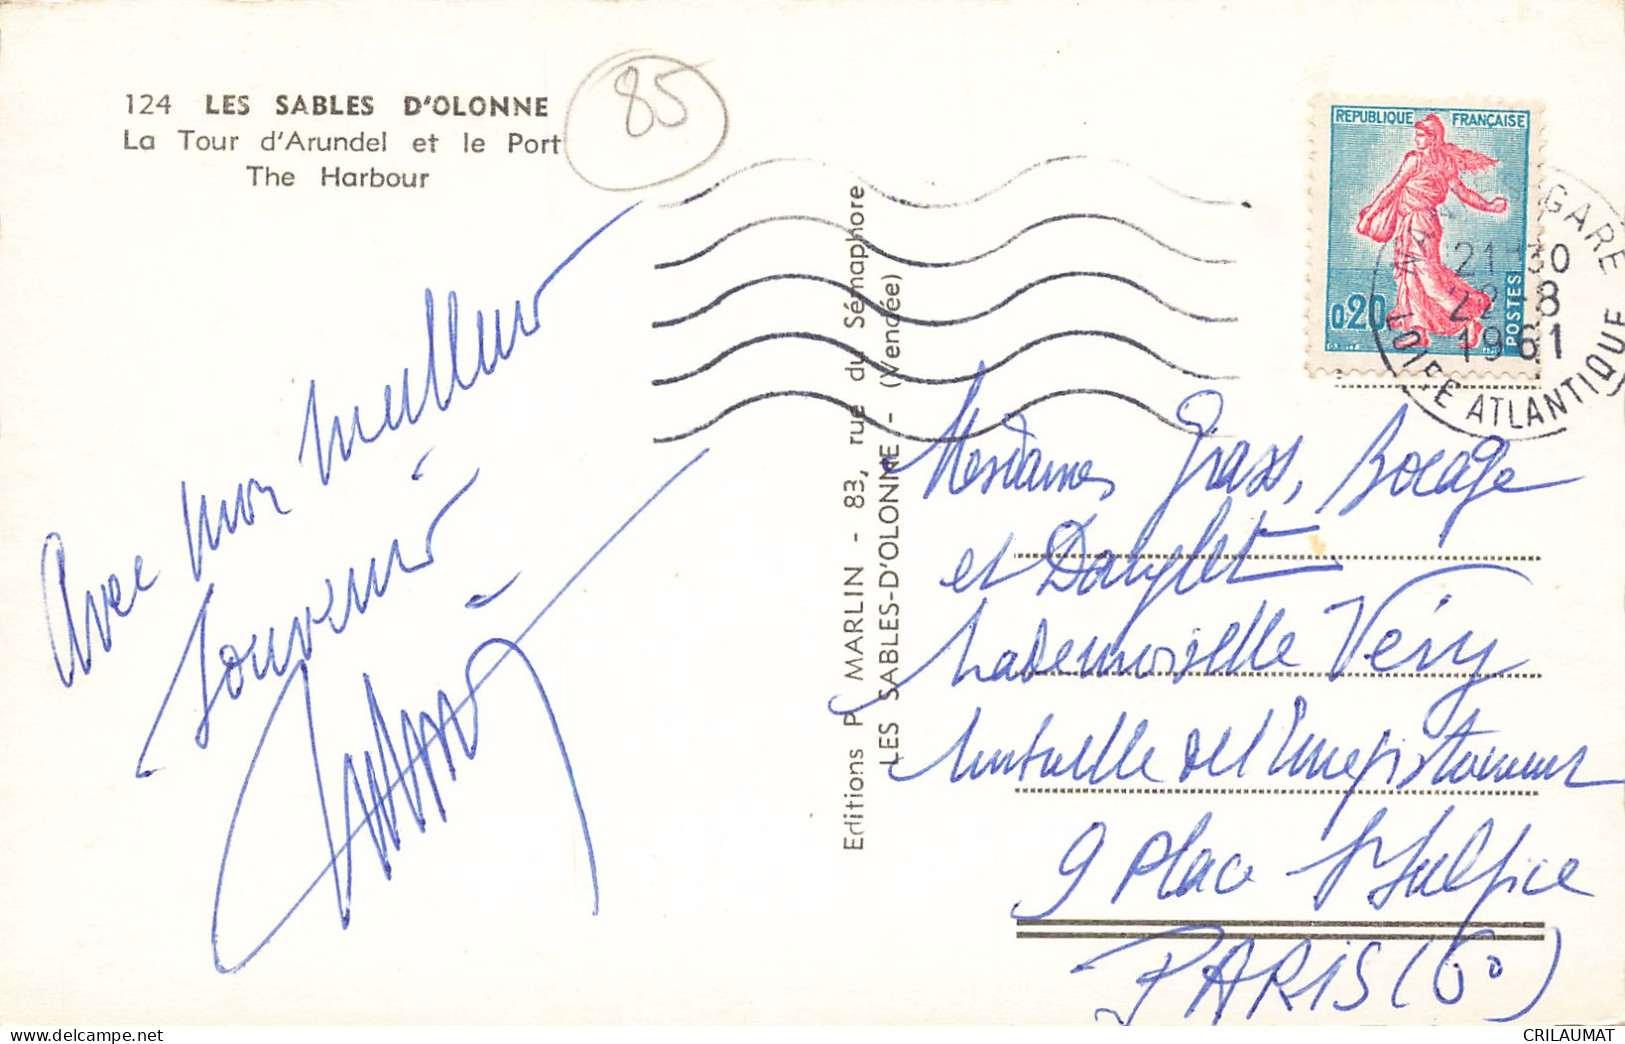 124 LES SABLES D'OLONNE
La Tour d'Arundel et le Port
The Harbour
85
Avec mon meilleur
Souvenir
Editions P. MARLIN - 83, rue du Sémaphore
LES SABLES-D'OLONNE - (Vendée)
REPUBLIQUE FRANÇAISE
0,20
POSTES
GARE
21 30
22-8
1961
LOIRE ATLANTIQUE
Mesdames Grass, Bocage
et
Mademoiselle Véry
Mutuelle de l'Enregistrement
9 Place St Sulpice
PARIS (6°)
CRILAUMAT